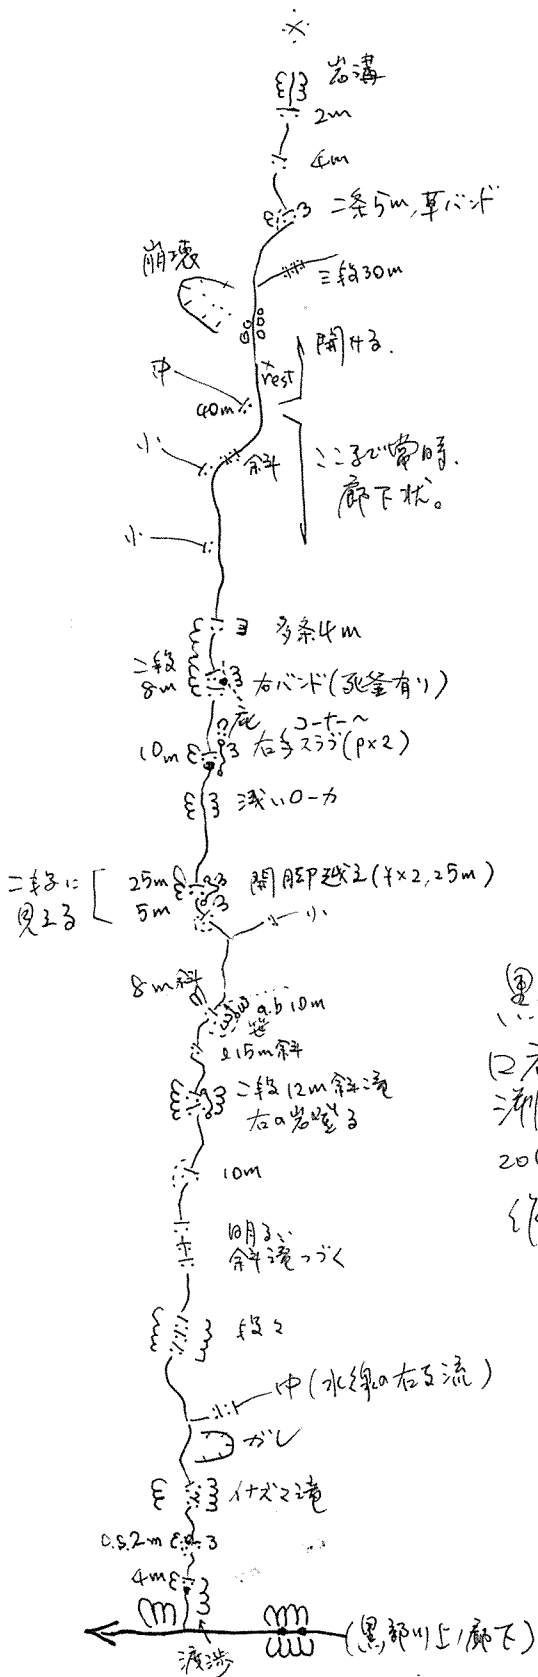 岩溝
2m
4m
二条5m,草バンド
崩壊
三段30m
開ける.
rest
中
40m
小
斜
ここまで常時.
廊下状。
小
多条4m
二段
8m
右バンド(死釜有り)
コーナー〜
10m
右手スラブ(P×2)
浅いローカ
二段に
見える
25m
5m
開脚越え(f×2,25m)
小
8m斜
a.b 10m
笹
15m斜
二段12m斜滝
右の岩登る
10m
明るい
斜滝つづく
段々
中(水線の右支流)
ガレ
イナズマ滝
C.S.2m
4m
(黒部川上ノ廊下)
渡渉
黒